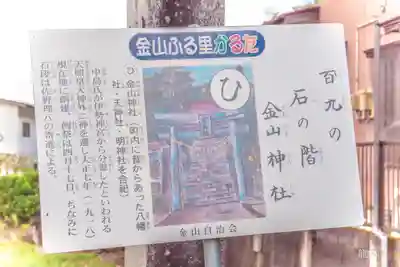 金山ふる里かるた
百九の
石の階
金山神社
ひ
ひ 金山神社(町内に昔からあった八幡
社・天神社・明神社を合祀)
中島氏が伊勢神宮から分霊したといわれる
天照皇大神外二神を遷し大正七年(一九一八)
現在地に創建。例祭は四月十七日、ちなみに
石段は佐野理八の寄進による。
金山自治会